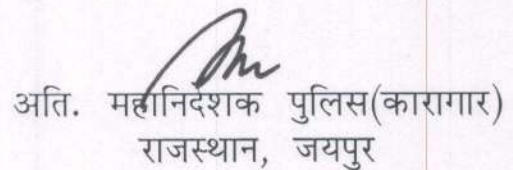 अति. महानिदेशक पुलिस(कारागार)
राजस्थान, जयपुर